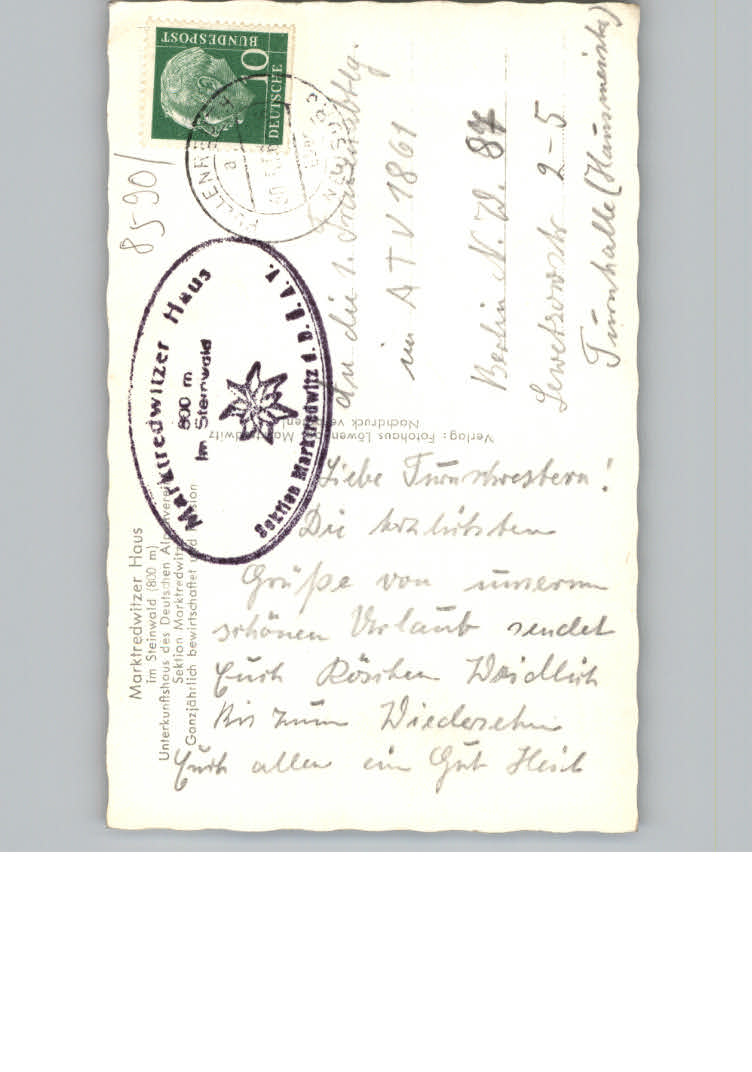 DEUTSCHE
BUNDESPOST
10
8590/
Marktredwitzer Haus
800 m
Im Steinwald
Sektion Marktredwitz d. D. A. V.
Marktredwitzer Haus
im Steinwald (800 m)
Unterkunftshaus des Deutschen Alpenvereins
Sektion Marktredwitz
Ganzjährlich bewirtschaftet und
Verlag: Fotohaus Löwen Marktredwitz
Nachdruck
An die 1. Frauenabtlg.
im A T V 1861
Berlin N. 87
2-5
Turnhalle (Hausmeister)
Liebe Turnschwestern!
Die herzlichsten
Grüße von unserem
schönen Urlaub sendet
Euch Röschen Weidlich
Bis zum Wiedersehn
Euch allen ein Gut Heil